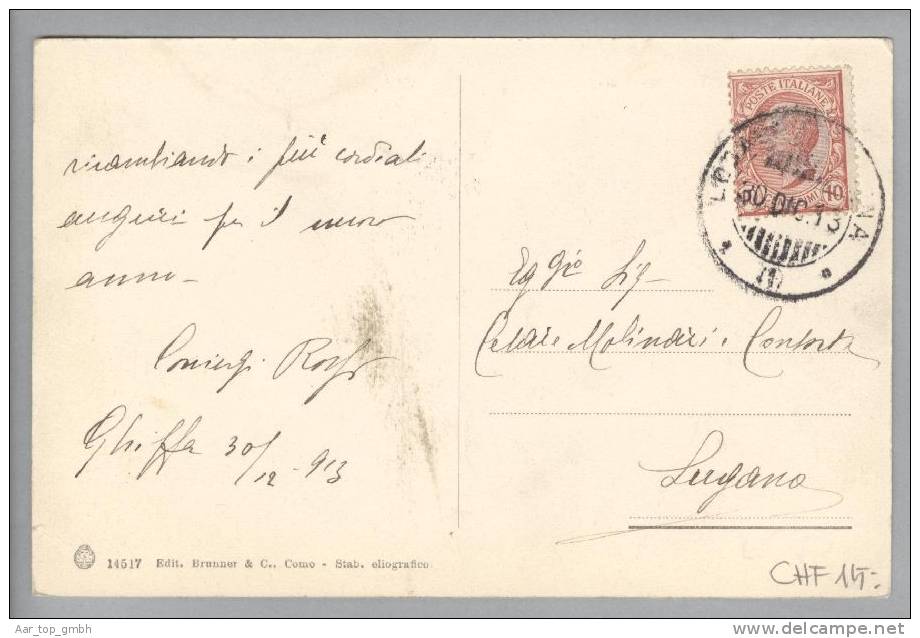 ricambiando i più cordiali
auguri per il nuovo
anno -
Coniugi
Ghiffa 30/12 - 913
14517 Edit. Brunner & C., Como - Stab. eliografico
POSTE ITALIANE
10
30 DIC. 13
NA
Egg Sig
Cesare Molinari e Consorte
Lugano
CHF 15.-
Aar_top_gmbh
delcampe.net